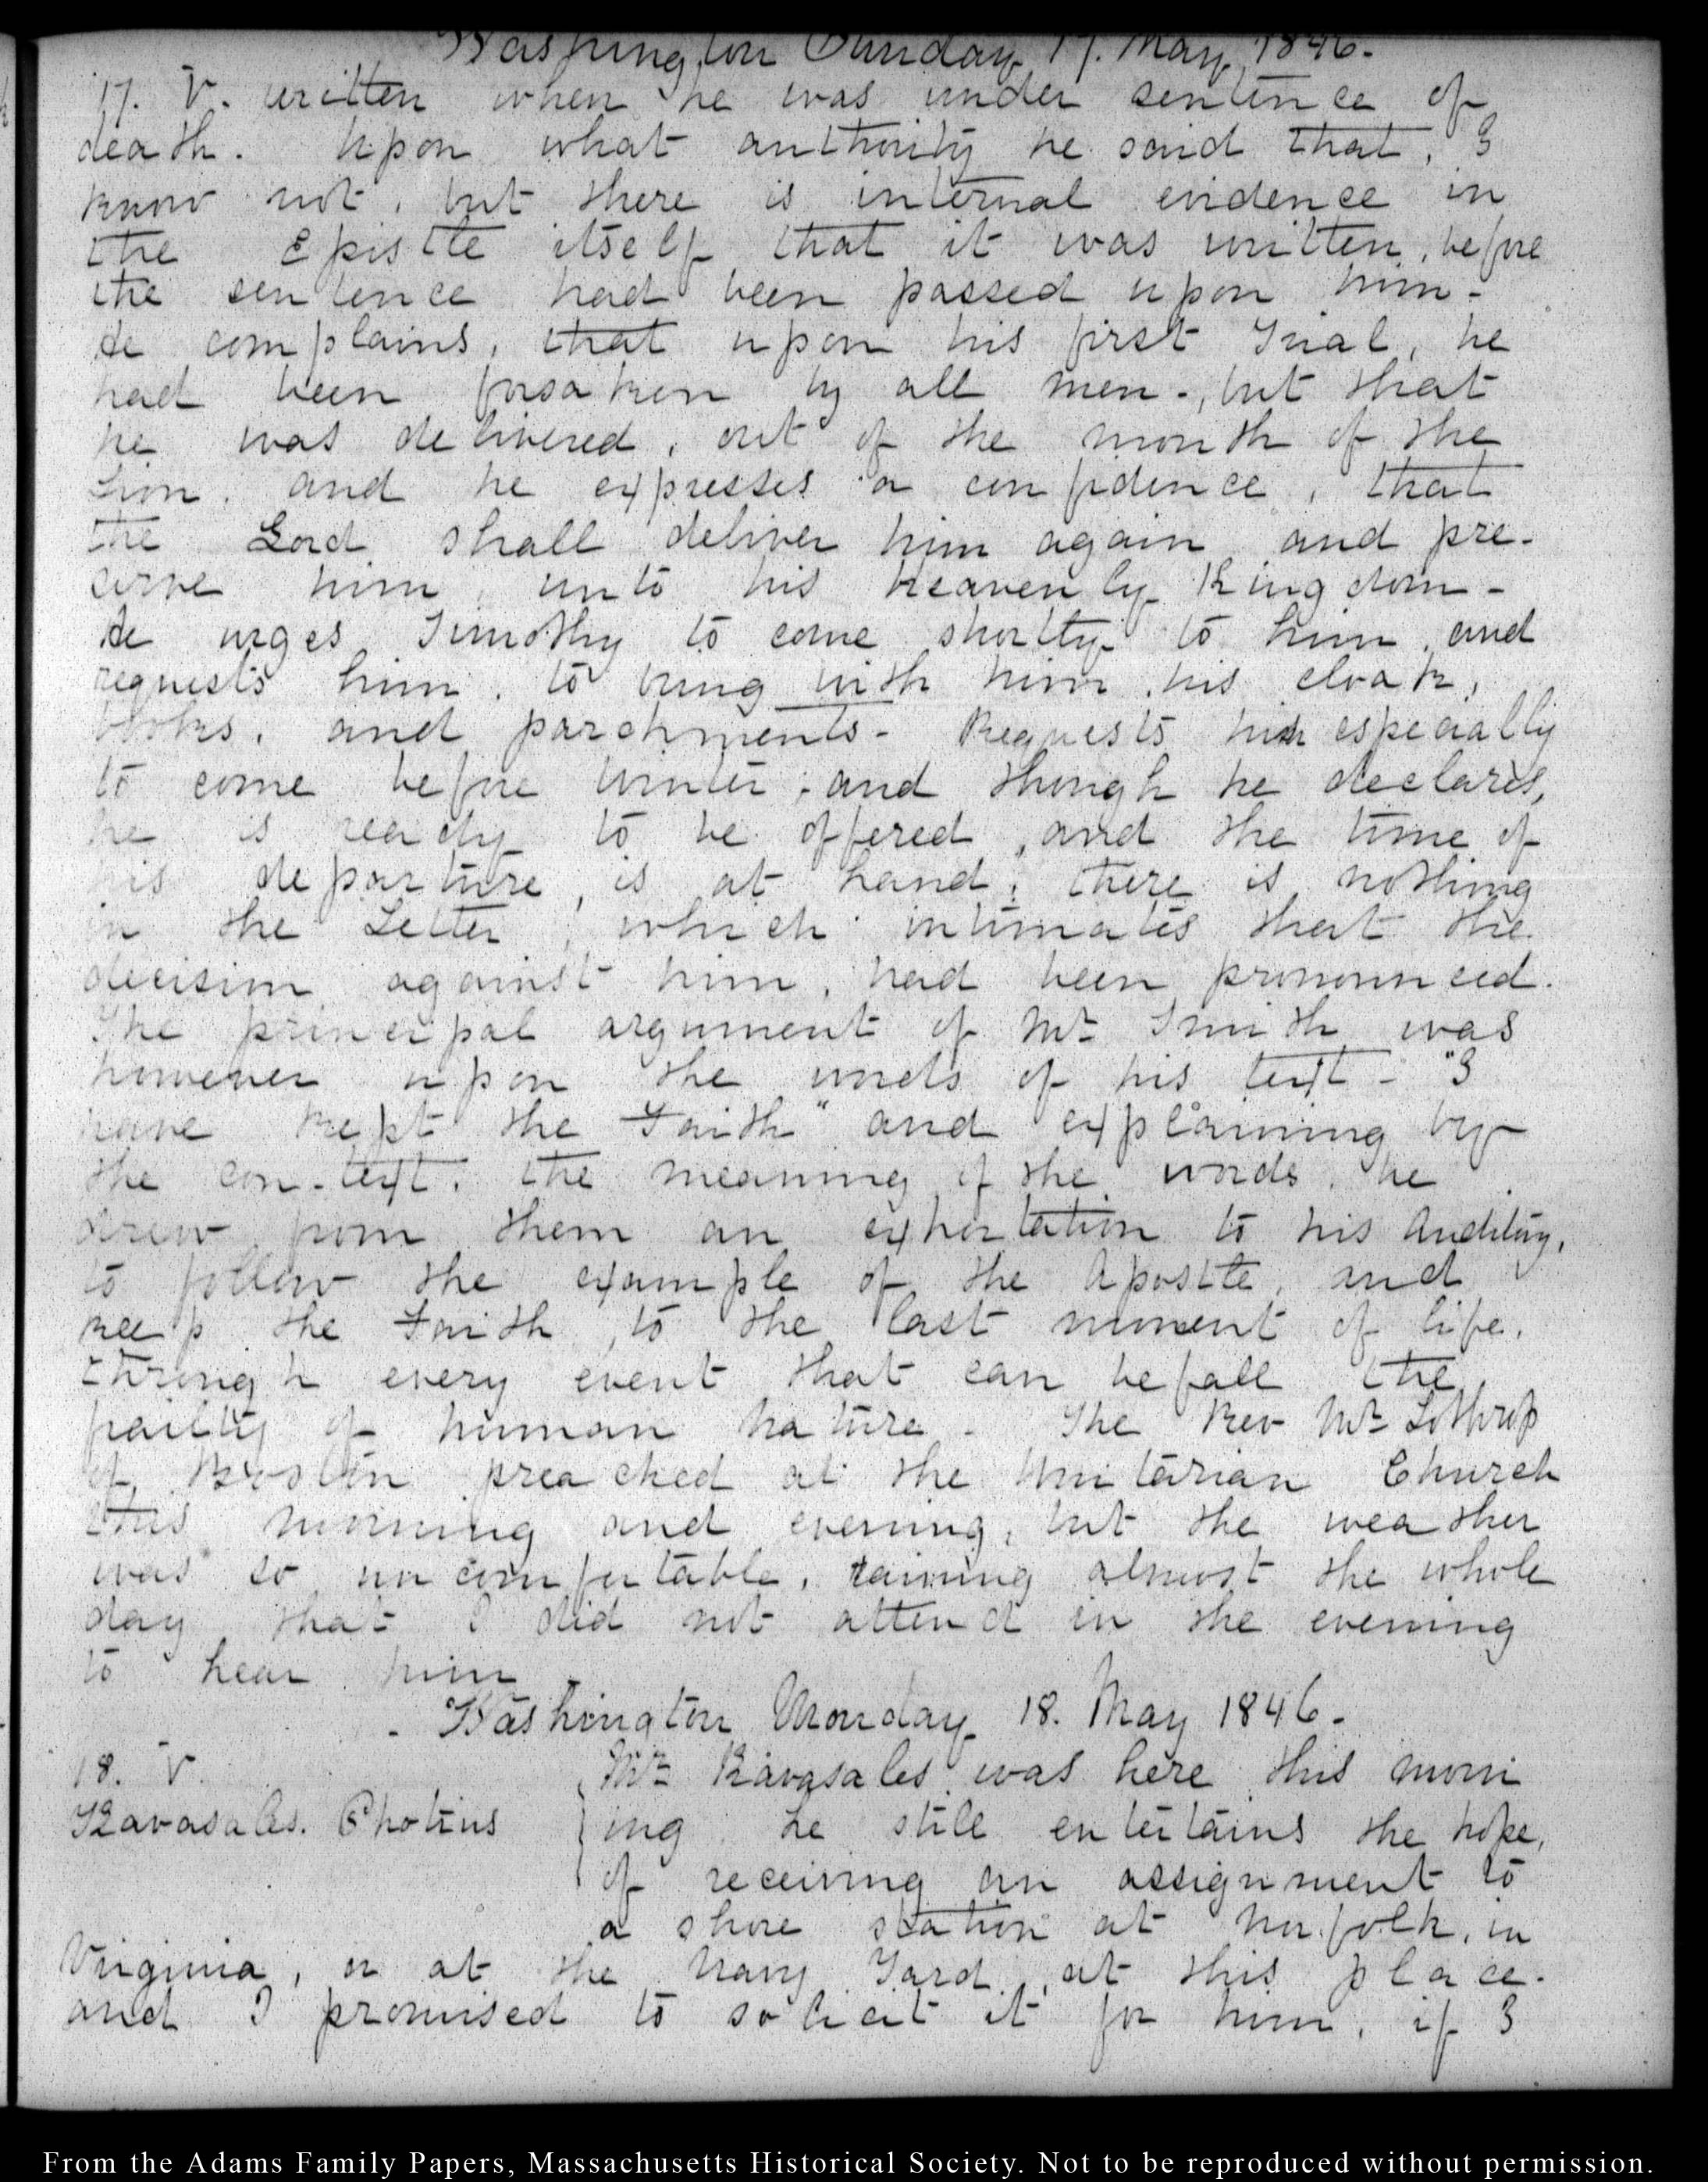 Washington Sunday 17. May 1846.
17. V. written when he was under sentence of
death. Upon what authority he said that, I
know not, but there is internal evidence in
the Epistle itself that it was written, before
the sentence had been passed upon him-
He complains, that upon his first Trial, he
had been forsaken by all men-, but that
he was delivered, out of the mouth of the
Lion, and he expresses a confidence, that
the Lord shall deliver him again, and pre-
serve him, unto his heavenly Kingdom-
He urges Timothy to come shortly to him, and
requests him, to bring with him, his cloak,
books, and parchments- Requests him especially
to come before winter; and though he declares,
he is ready to be offered, and the time of
his departure, is at hand; there is nothing
in the Letter, which intimates that the
decision against him, had been pronounced.
The principal argument of Mr Smith was
however upon the words of his text- "I
have kept the Faith" and explaining by
the con-text, the meaning of the words, he
drew from them an exhortation to his auditory,
to follow the example of the Apostle, and
keep the Faith, to the last moment of life,
through every event that can befall the
frailty of human nature- The Rev Mr Lothrop
of Boston preached at the Unitarian Church
this morning and evening, but the weather
was so uncomfortable, raining almost the whole
day that I did not attend in the evening
to hear him
- Washington Monday 18. May 1846-
18. V.
Kavasales. Photius
Mr Kavasales was here this morn
ing. he still entertains the hope,
of receiving an assignment to
a shore station at Norfolk, in
Virginia, or at the Navy Yard, at this place-
and I promised to solicit it for him, if I
From the Adams Family Papers, Massachusetts Historical Society. Not to be reproduced without permission.